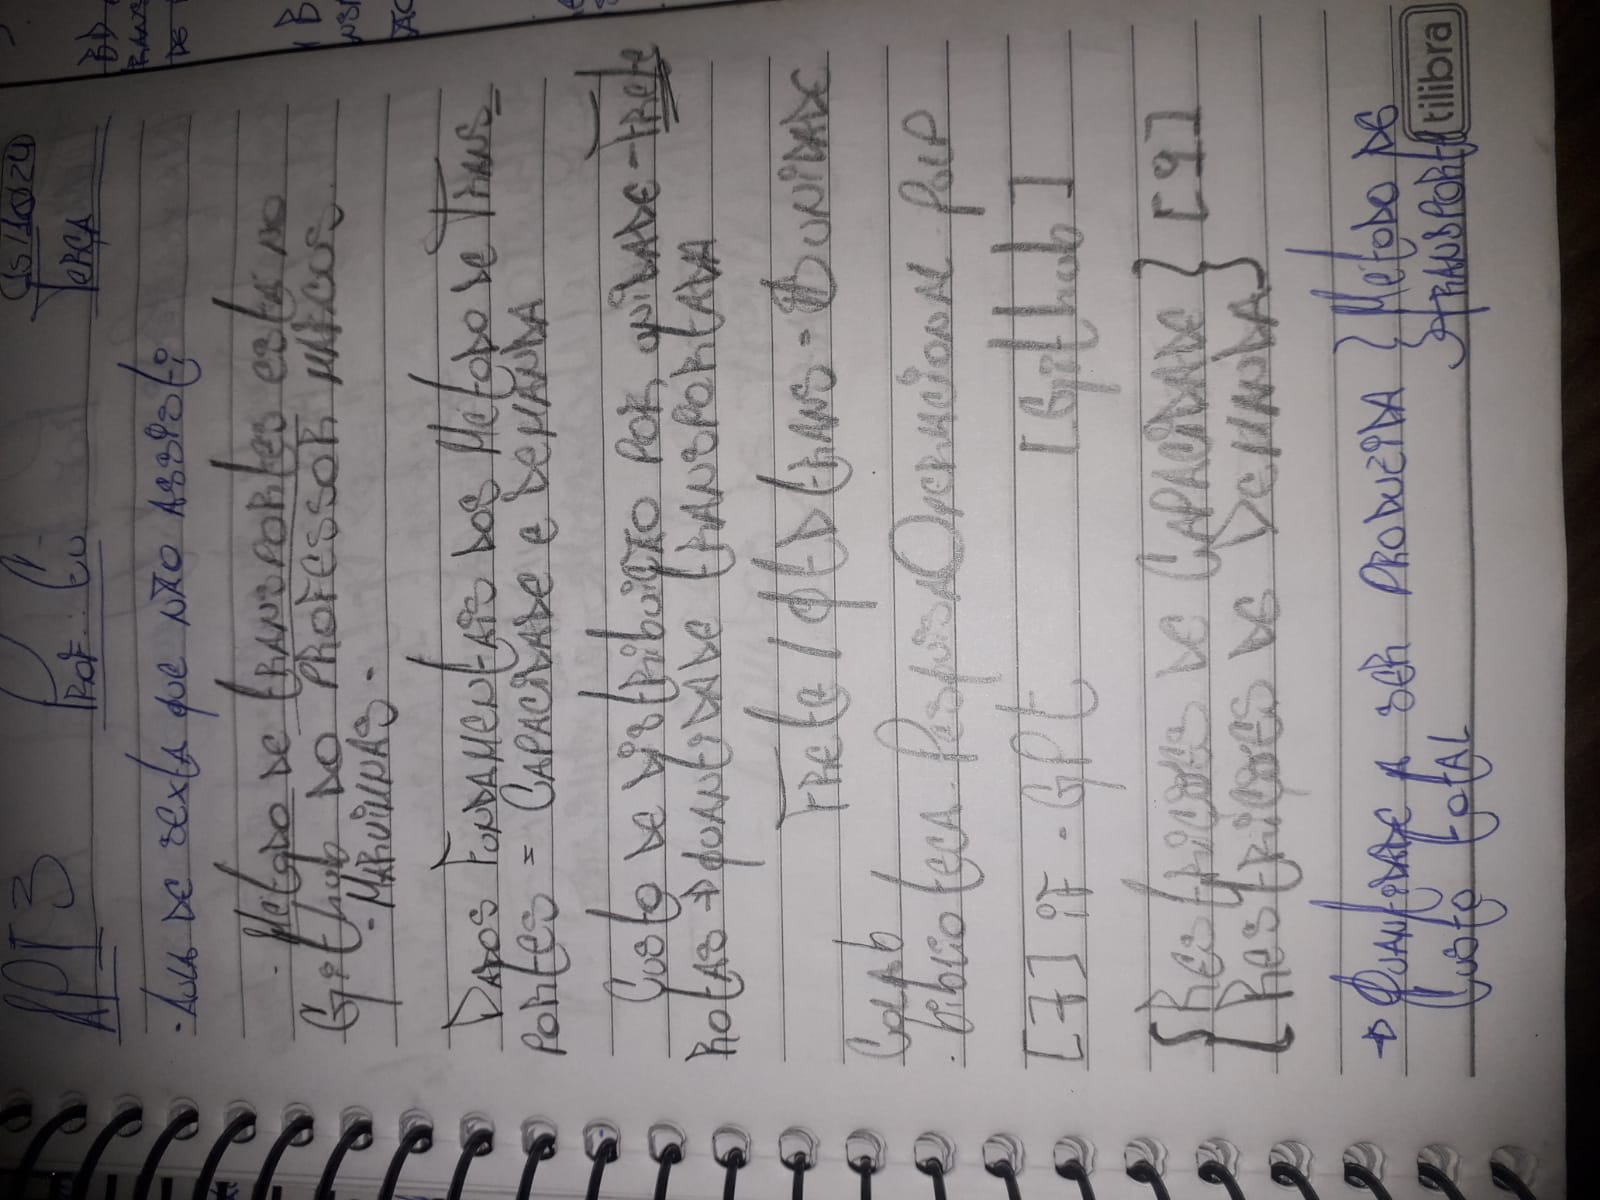 API 3 Prof.: Eu 15/10/24
Terça
· Aula de sexta que não assisti
· Método de transportes está no
Github do professor Marcus
- Marvinnas -
Dados Fundamentais dos Método de Trans-
portes = Capacidade e Demanda
Custo de distribuição por unidade - Frete
Rotas → quantidade transportada
Frete / qtd trans = $ unidade
Colab
· biblioteca Pesquisa Operacional PulP
[7] if - GPt [Github]
{ Restrições de Capacidade } [9]
Restrições de Demanda
→ Quantidade a ser produzida } Método de
Custo total transporte
tilibra